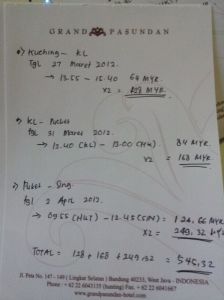 GRAND PASUNDAN
1) Kuching - KL
Tgl 27 Maret 2012.
→ 13.55 - 15.40 64 MYR.
X2 = 128 MYR.
2) KL - Phuket
Tgl 31 Maret 2012.
→ 12.40 (KL) - 13.00 (HKT) 84 MYR
X2 = 168 MYR
3) Phuket - Sing.
Tgl 2 April 2012.
→ 09.55 (HKT) - 12.45 (SIN) = 124,66 MYR
X2 = 249,32 MYR
TOTAL = 128 + 168 + 249,32 = 545,32
Jl. Peta No. 147 - 149 ( Lingkar Selatan ) Bandung 40233, West Java - INDONESIA
Phone : + 62 22 6043135 (hunting) Fax. + 62 22 6041667
www.grandpasundan-hotel.com